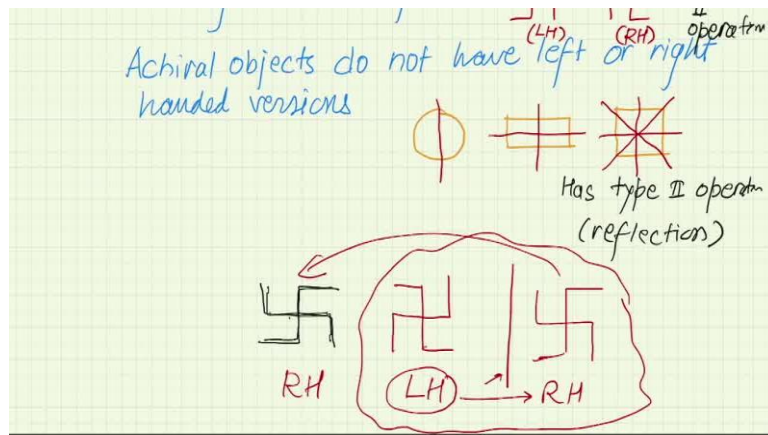 (LH) (RH) II
operatn
Achiral objects do not have left or right
handed versions
Has type II operatn
(reflection)
RH LH RH